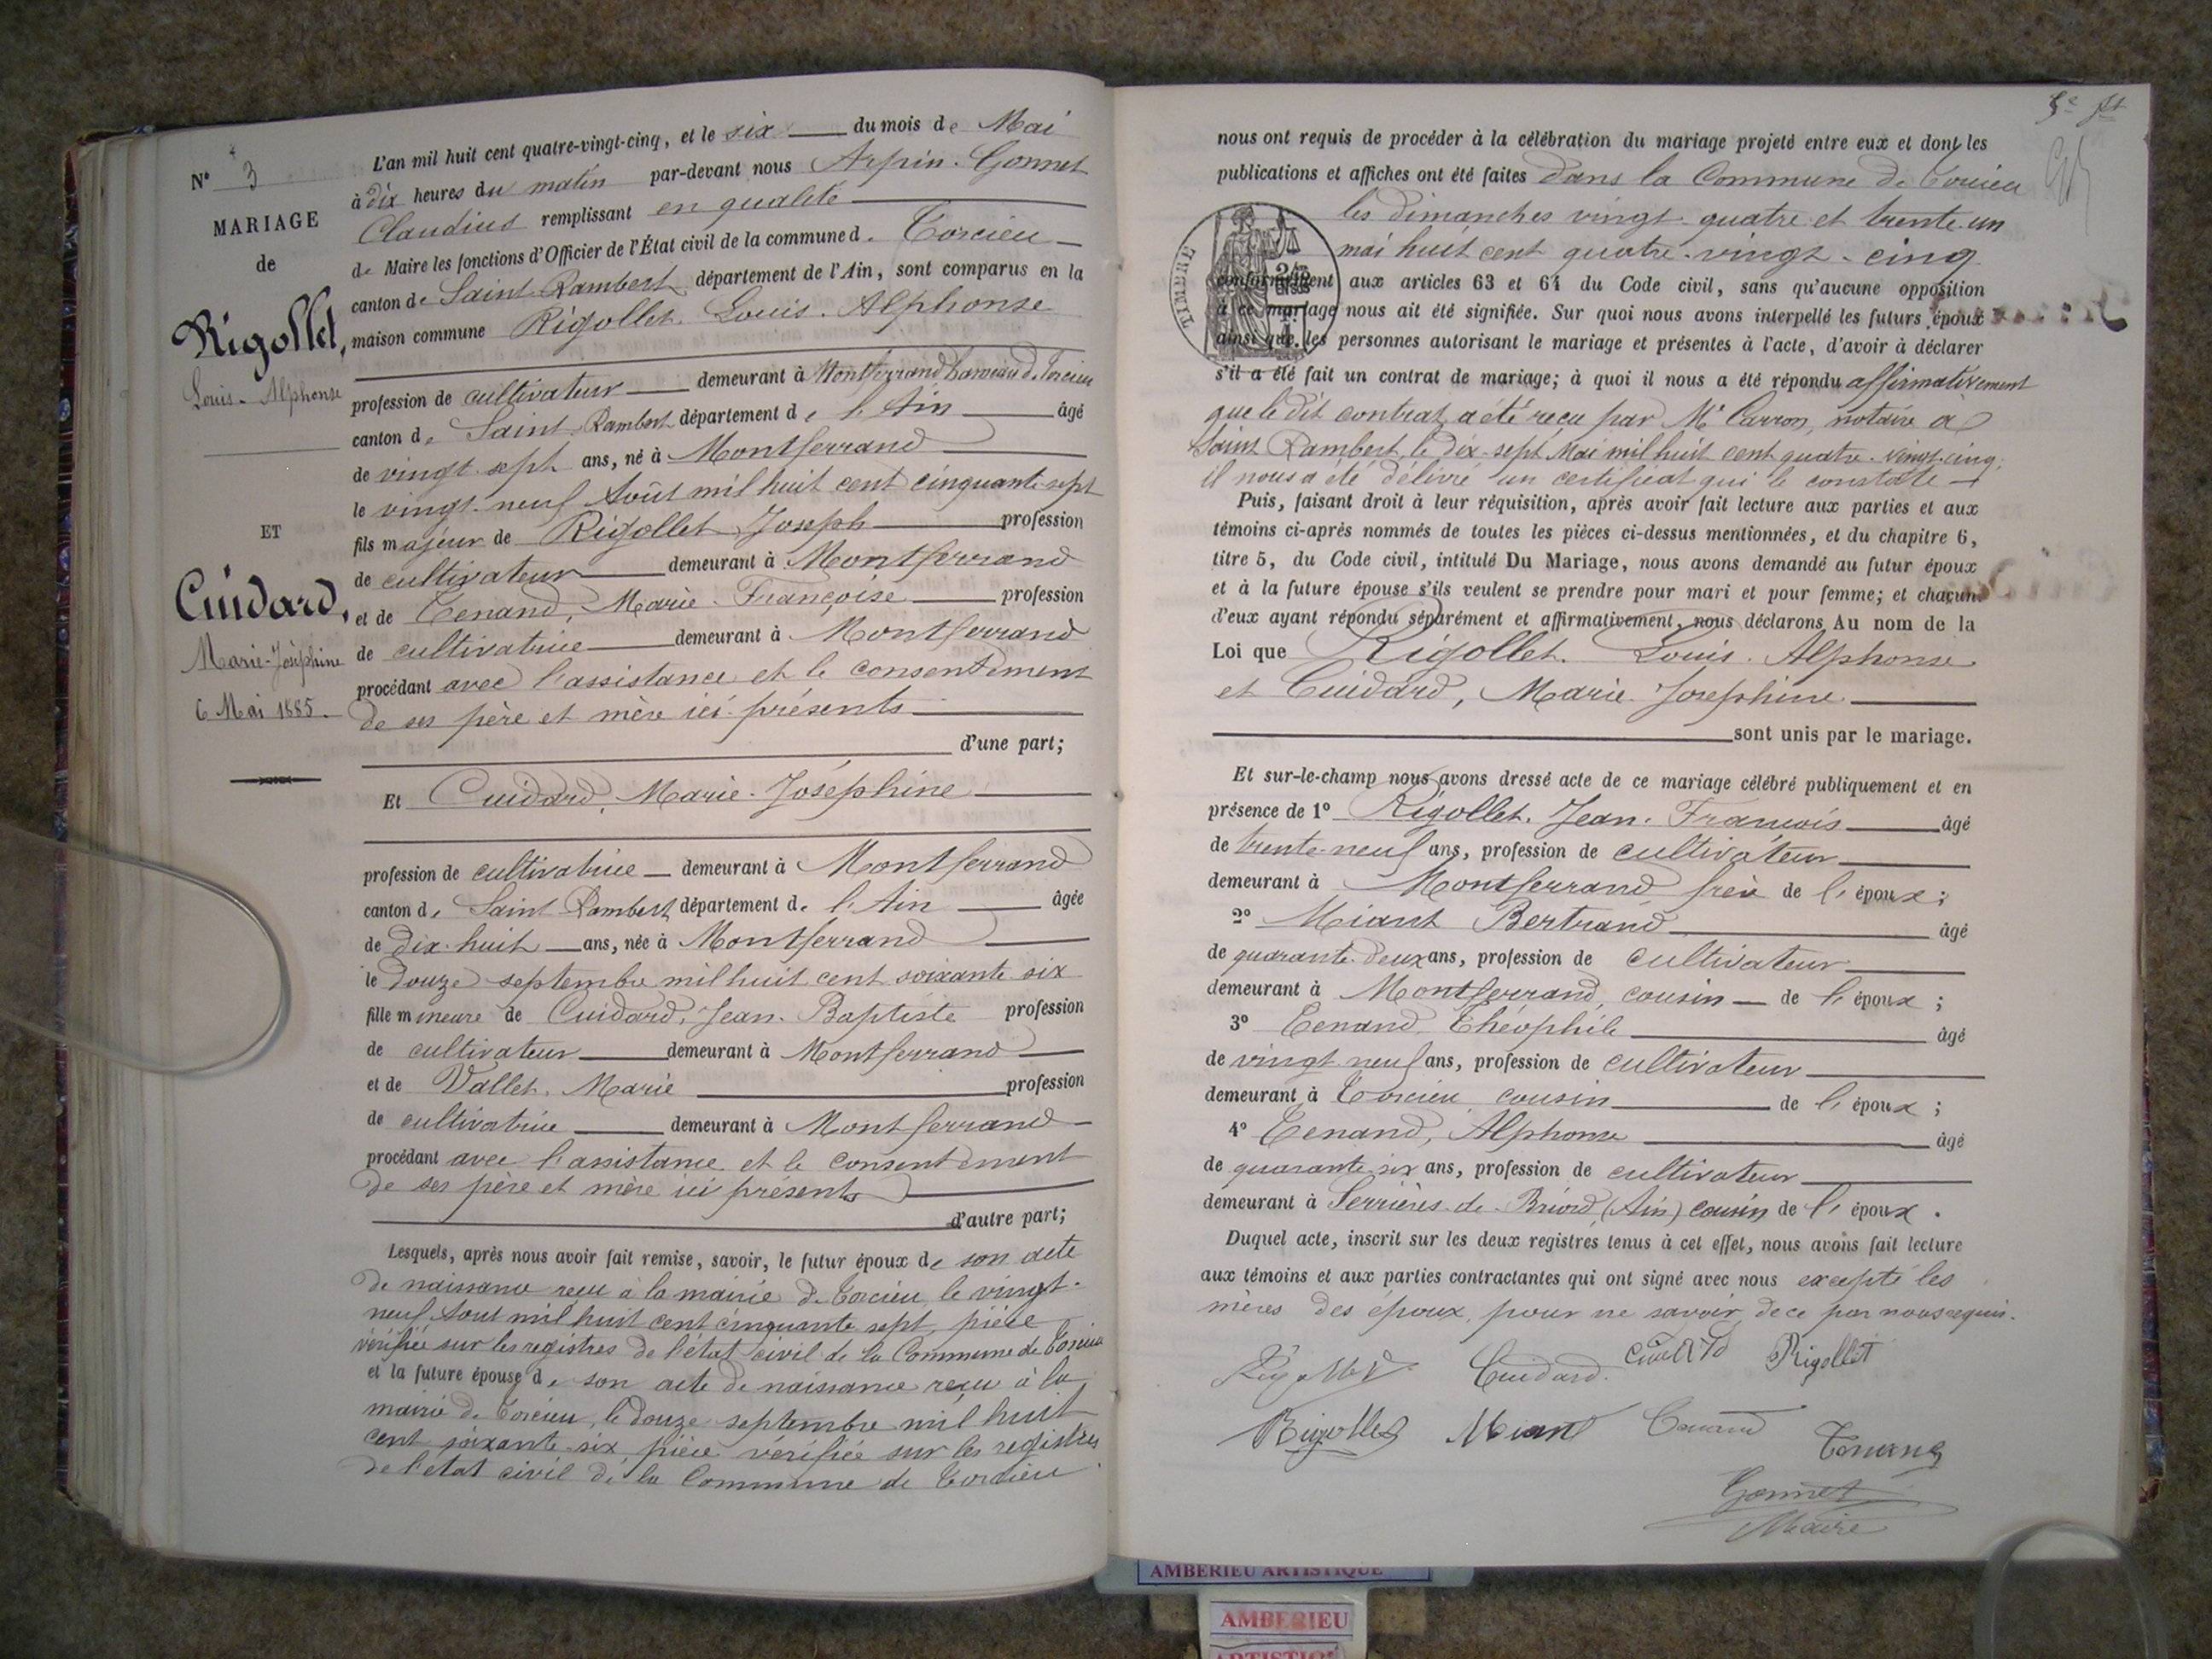 N° 3
MARIAGE
de
Rigollet,
Louis-Alphonse
ET
Cuidard,
Marie-Joséphine
6 Mai 1885.
L'an mil huit cent quatre-vingt-cinq, et le six du mois de Mai
à dix heures du matin par-devant nous Arpin-Gonnet
Claudius remplissant en qualité
de Maire les fonctions d'Officier de l'État civil de la commune d. Torcieu
canton de Saint-Rambert département de l'Ain, sont comparus en la
maison commune Rigollet, Louis-Alphonse
profession de cultivateur demeurant à Montferrand hameau d. Torcieu
canton de Saint Rambert département de l'Ain âgé
de vingt-sept ans, né à Montferrand
le vingt-neuf Août mil huit cent cinquante-sept
fils majeur de Rigollet Joseph profession
de cultivateur demeurant à Montferrand
et de Tenand, Marie-Françoise profession
de cultivatrice demeurant à Montferrand
procédant avec l'assistance et le consentiment
de ses père et mère ici présents
d'une part;
Et Cuidard, Marie-Joséphine
profession de cultivatrice demeurant à Montferrand
canton de Saint Rambert département d. l'Ain âgée
de dix-huit ans, née à Montferrand
le douze septembre mil huit cent soixante six
fille mineure de Cuidard, Jean-Baptiste profession
de cultivateur demeurant à Montferrand
et de Vallet, Marie profession
de cultivatrice demeurant à Montferrand
procédant avec l'assistance et le consentement
de ses père et mère ici présents
d'autre part;
Lesquels, après nous avoir fait remise, savoir, le futur époux de son acte
de naissance reçu à la mairie de Torcieu, le vingt-
neuf Août mil huit cent cinquante sept, pièce
vérifiée sur les registres de l'état civil de la Commune de Torcieu
et la future épouse de son acte de naissance reçu à la
mairie de Torcieu, le douze septembre mil huit
cent soixante-six pièce vérifiée sur les registres
de l'état civil de la Commune de Torcieu
nous ont requis de procéder à la célébration du mariage projeté entre eux et dont les
publications et affiches ont été faites dans la Commune de Torcieu
les dimanches vingt-quatre et trente-un
mai huit cent quatre-vingt-cinq
TIMBRE
conformément aux articles 63 et 64 du Code civil, sans qu'aucune opposition
à ce mariage nous ait été signifiée. Sur quoi nous avons interpellé les futurs époux
ainsi que les personnes autorisant le mariage et présentes à l'acte, d'avoir à déclarer
s'il a été fait un contrat de mariage; à quoi il nous a été répondu affirmativement
que le dit contrat a été reçu par Me Carron, notaire à
Saint Rambert, le dix-sept Mai mil huit cent quatre-vingt-cinq,
il nous a été délivré un certificat qui le constate
Puis, faisant droit à leur réquisition, après avoir fait lecture aux parties et aux
témoins ci-après nommés de toutes les pièces ci-dessus mentionnées, et du chapitre 6,
titre 5, du Code civil, intitulé Du Mariage, nous avons demandé au futur époux
et à la future épouse s'ils veulent se prendre pour mari et pour femme; et chacun
d'eux ayant répondu séparément et affirmativement, nous déclarons Au nom de la
Loi que Rigollet, Louis-Alphonse
et Cuidard, Marie-Joséphine
sont unis par le mariage.
Et sur-le-champ nous avons dressé acte de ce mariage célébré publiquement et en
présence de 1° Rigollet, Jean-François âgé
de trente-neuf ans, profession de cultivateur
demeurant à Montferrand frère de l'époux;
2° Miant Bertrand âgé
de quarante-deux ans, profession de cultivateur
demeurant à Montferrand, cousin de l'époux;
3° Tenand Théophile âgé
de vingt-neuf ans, profession de cultivateur
demeurant à Torcieu, cousin de l'époux;
4° Tenand, Alphonse âgé
de quarante-six ans, profession de cultivateur
demeurant à Serrières-de-Briord, (Ain) cousin de l'époux.
Duquel acte, inscrit sur les deux registres tenus à cet effet, nous avons fait lecture
aux témoins et aux parties contractantes qui ont signé avec nous excepté les
mères des époux, pour ne savoir, de ce par nous requis.
Rigollet Cuidard. Cuidard Rigollet
Rigollet Miant Tenand Tenand
Gonnet
Maire
AMBERIEU ARTISTIQUE
AMBERIEU
ARTISTIQUE